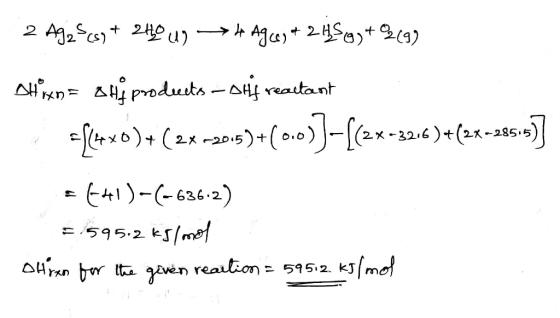 2 Ag₂S(s) + 2H₂O(l) → 4 Ag(s) + 2H₂S(g) + O₂(g)
ΔH°rxn = ΔH°f products – ΔH°f reactant
= [(4×0) + (2×-20.5) + (0.0)] – [(2×-32.6) + (2×-285.5)]
= (-41) – (-636.2)
= 595.2 kJ/mol
ΔH°rxn for the given reaction = 595.2 kJ/mol